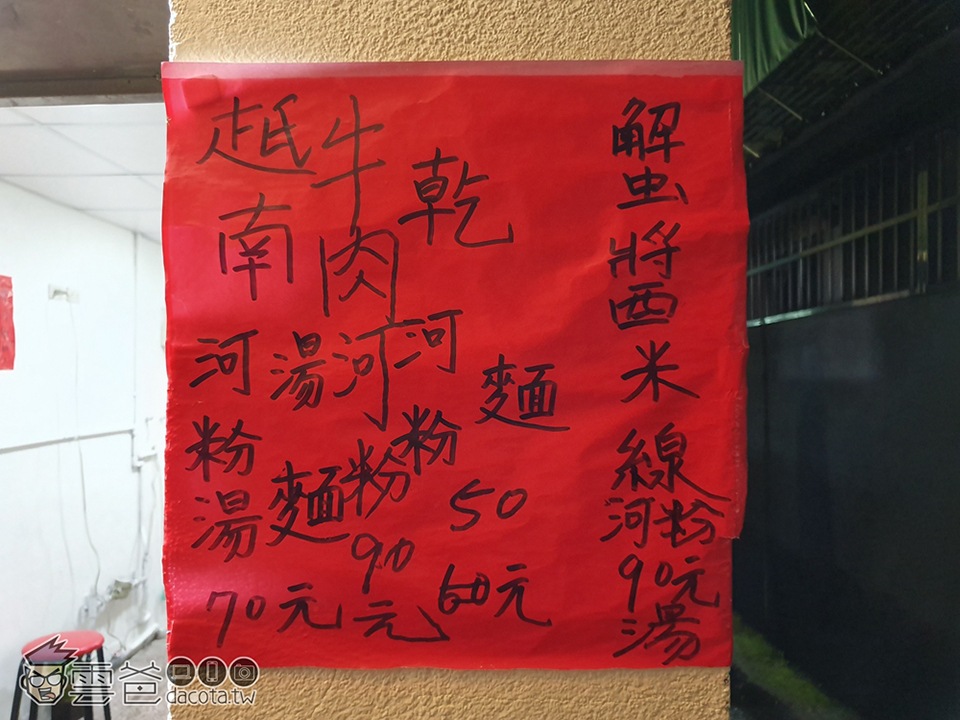 解虫將西米線
河粉
90元
湯
乾河粉
麵
50
60元
牛肉河粉
90
元
湯麵
越南河粉湯
70元
雲爸
dacota.tw